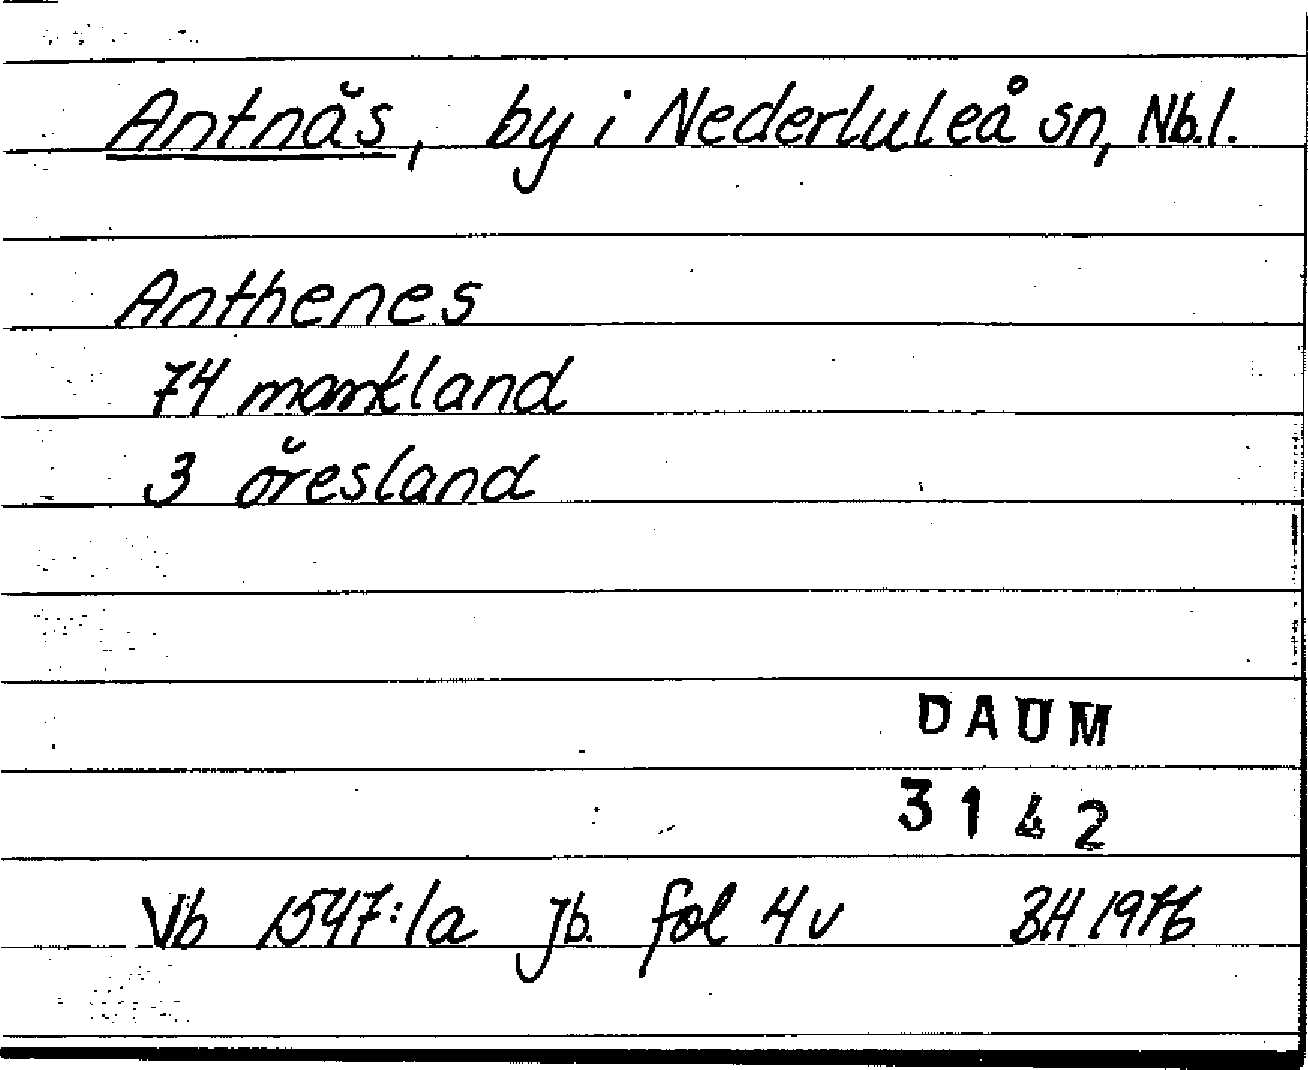 Antnäs, by i Nederluleå sn, Nb.l.
Anthenes
74 markland
3 öresland
DAUM
3142
Vb 1547:1a jb. fol 4v BH 1976